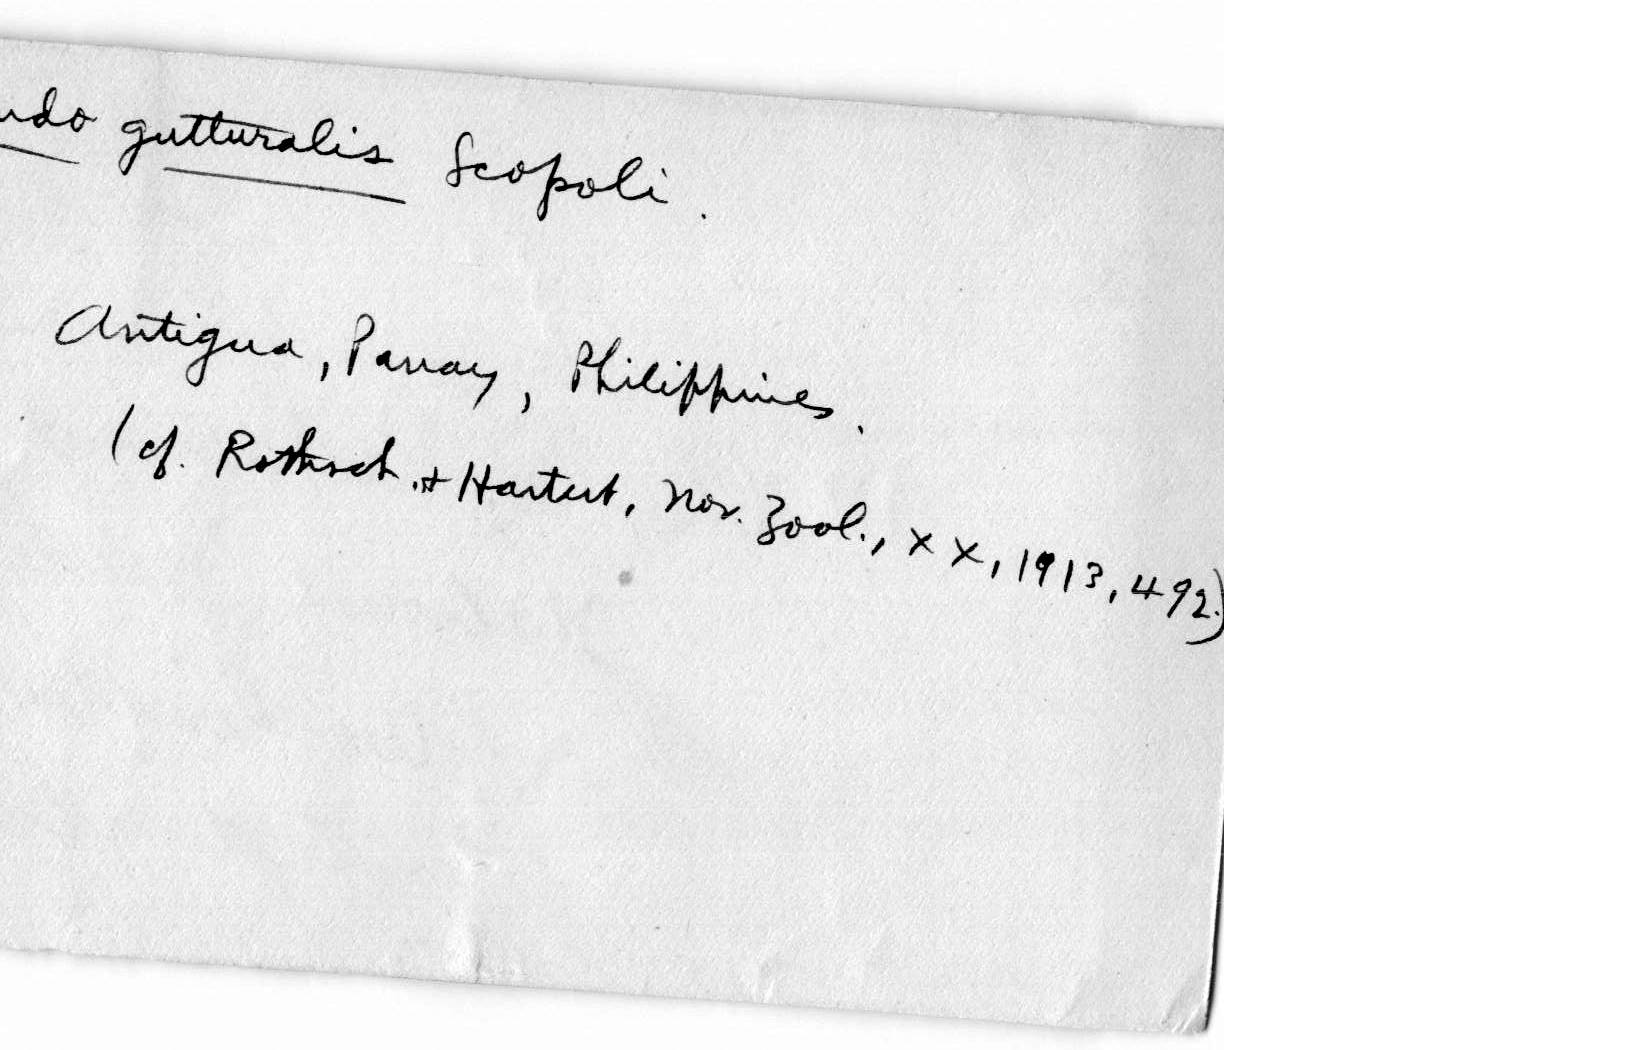 undo gutturalis Scopoli.
Antigua, Panay, Philippines.
(cf. Rothsch. & Hartert, Nov. Zool., XX, 1913, 492.)